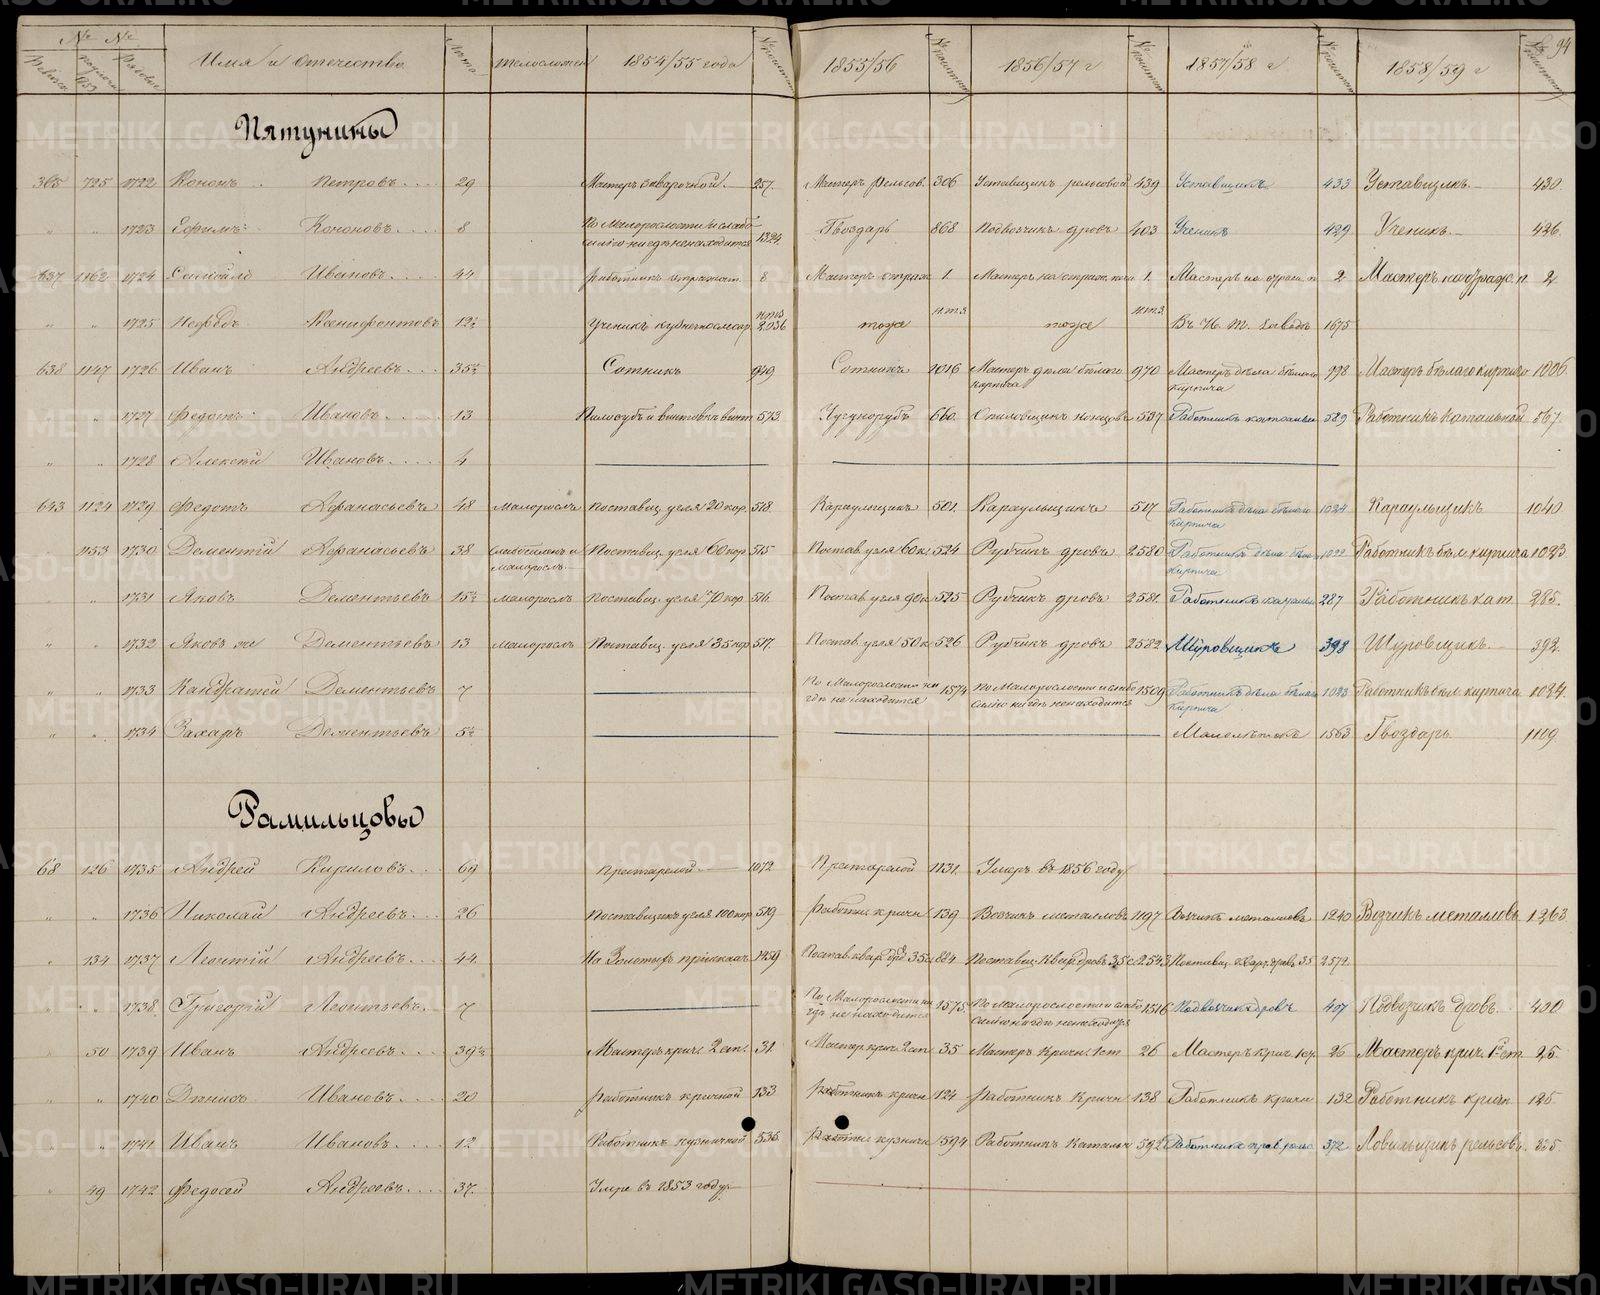 № № 94
Имя и Отечество Лета телосложен 1854/55 года 1855/56 1856/57 г 1857/58 г 1858/59 г
Пятунины
365 725 1722 Кононъ Петровъ 29 Мастеръ сварочной 257 Мастеръ рельсов. 306 Уставщикъ рельсовой 439 Уставщикъ 433 Уставщикъ 430
" " 1723 Ефимъ Кононовъ 8 по Малорослости и слабосилiю нигде ненаходится 1324 Гвоздарь 868 Подвозчикъ дровъ 403 Ученикъ 429 Ученикъ 426
637 1162 1724 Самойло Ивановъ 44 работникъ отражат. 8 Мастеръ отраж 1 Мастеръ на отраж. печи 1 Мастеръ на отраж. п 2 Мастеръ на отраж. п. 2
" " 1725 Нефедъ Ксенифонтовъ 12½ ученикъ кузнечнослесар н.т.з. 2036 тоже н.т.з. тоже н.т.з. Въ Н. Т. Заводе 1675
638 1147 1726 Иванъ Андреевъ 35½ Сотникъ 949 Сотникъ 1016 Мастеръ дела белаго кирпича 970 Мастеръ дела белаго кирпича 998 Мастеръ белаго кирпича 1006
" " 1727 Федотъ Ивановъ 13 573 Чугунорубъ 660 Опиловщикъ концовъ 537 Работникъ катальн 589 Работникъ катальной 567
" " 1728 Алексей Ивановъ 4
643 1124 1729 Федотъ Афанасьевъ 48 малорослъ поставщ. угля 20 кор 518 Караульщикъ 501 Караульщикъ 517 Работникъ дела белаго кирпича 1024 Караульщикъ 1040
1153 1730 Дементiй Афанасьевъ 38 слабосиленъ и малорослъ Поставщ. угля 60 кор 515 Постав. угля 60 к 524 Рубчикъ дровъ 2580 Работникъ дела бел. кирпича 1022 Работникъ бел. кирпича 1023
" 1731 Яковъ Дементьевъ 15½ малорослъ поставщ. угля 70 кор 516 Постав. угля 90 к 525 Рубчикъ дровъ 2581 Работникъ катальн 287 Работникъ кат. 285
" " 1732 Яковъ же Дементьевъ 13 малорослъ Поставщ. угля 35 кор 517 Постав. угля 50 к 526 Рубчикъ дровъ 2582 Шуровщикъ 398 Шуровщикъ 392
" " 1733 Кандратей Дементьевъ 7 По Малорослости нигде не находится 1574 по Малорослости и слабосилiю нигде ненаходится 1509 Работникъ дела белаго кирпича 1023 Работникъ бел. кирпича 1024
" " 1734 Захаръ Дементьевъ 5½ Малолетокъ 1563 Гвоздарь 1109
Рамильцовы
68 126 1735 Андрей Кириловъ 69 престарелой 1072 Престарелой 1131 Умеръ въ 1856 году
" " 1736 Николай Андреевъ 26 Поставщикъ угля 100 кор 519 работн кричн 139 Возчикъ металловъ 1197 Возчикъ металловъ 1240 Возчикъ металовъ 1263
" 134 1737 Леонтiй Андреевъ 44 На Золотыхъ прiискахъ 1459 Постав. квар. дро 35 с 884 Поставщ. квар дровъ 35 с 2543 Поставщ. кварт. дровъ 35 2572
" " 1738 Григорiй Леонтьевъ 7 По Малорослости нигде не находится 1575 по Малорослости и слабосилiю нигде ненаходится 1516 Подвозчикъ дровъ 407 Подвозчикъ дровъ 400
" 50 1739 Иванъ Андреевъ 39½ Мастеръ крич. 2 ст. 31 Мастер крич 2 ст 35 Мастеръ Кричн. 1 ст 26 Мастеръ крич. 1 ст. 26 Мастеръ крич. 1й ст. 25
" " 1740 Дюнисъ Ивановъ 20 работникъ кричной 133 работникъ кричн 124 работникъ Кричн 138 Работникъ кричн 132 Работник крич 125
" " 1741 Иванъ Ивановъ 12 Работникъ кузничной 536 работн кузнични 594 Работникъ Катальн 592 372 Ловильщикъ рельсовъ 335
" 49 1742 Федосей Андреевъ 37 Умре въ 1853 году